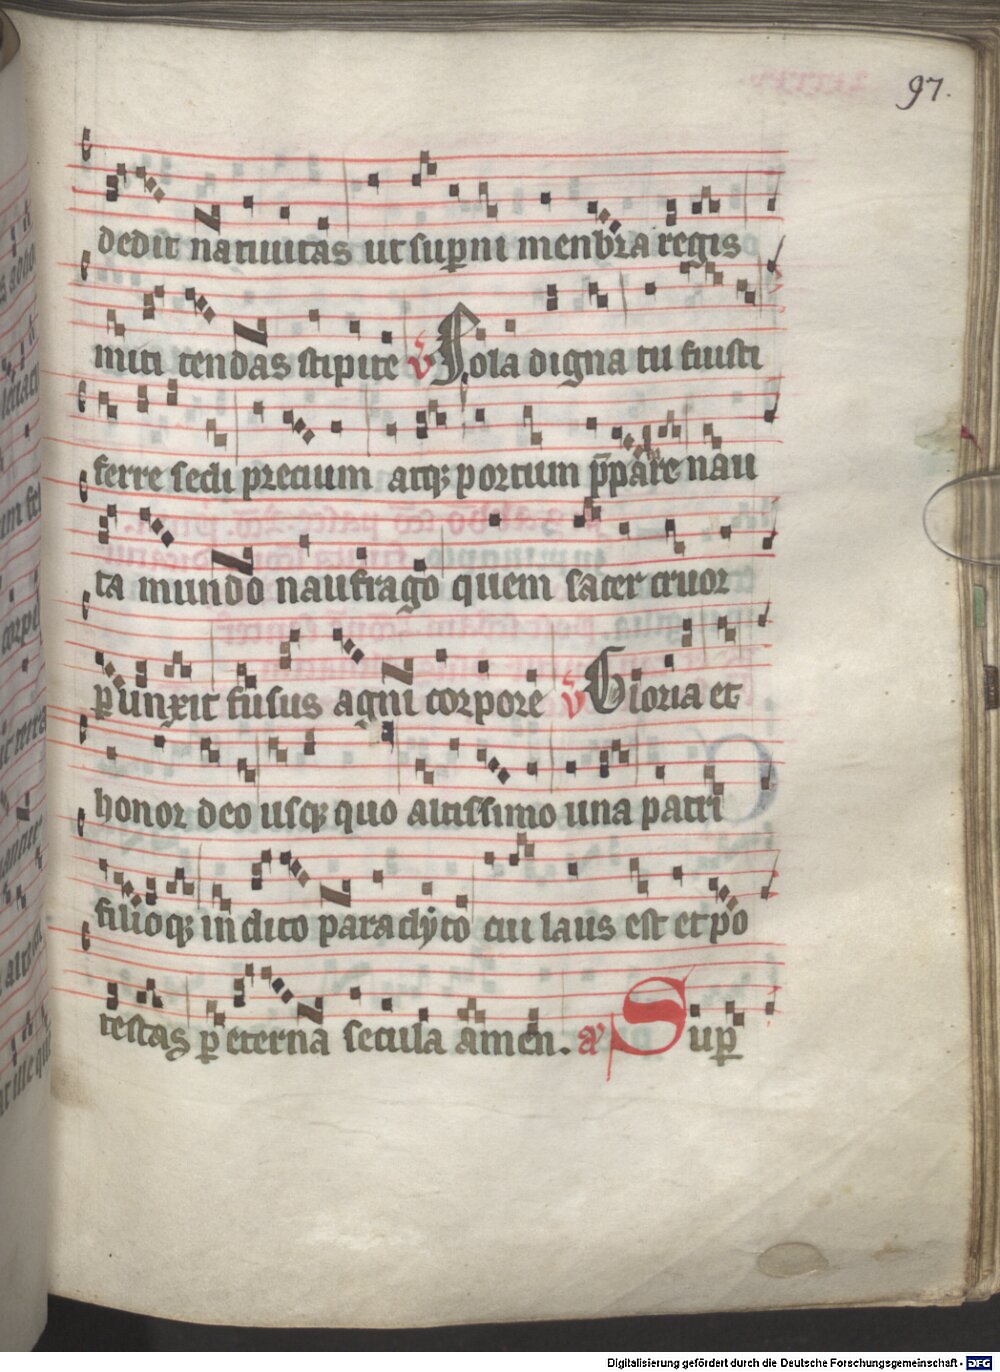 97.
dedit natiuitas ut sup̄ni menbra regis
miti tendas stipite v̄ Sola digna tu fuisti
ferre secli precium atq; portum p̄pare nau
ta mundo naufrago quem sacer cruor
p̄unxit fusus agni corpore v̄ Gloria et
honor deo usq; quo altissimo una patri
filioq; inclito paraclẏto cui laus est et po
testas p̄ eterna secula amen. a' Sup̄
Digitalisierung gefördert durch die Deutsche Forschungsgemeinschaft - DFG